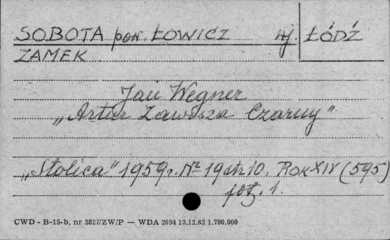 SOBOTA pow. ŁOWICZ wj. ŁÓDŹ
ZAMEK
Jan Wegner
„Artur Zawisza Czarny"
„Stolica" 1959r. Nr 19 str. 10. Rok XIV (595)
fot. 1.
CWD - B-15-b, nr 2827/ZW/P — WDA 2694 13.12.62 1.700.000